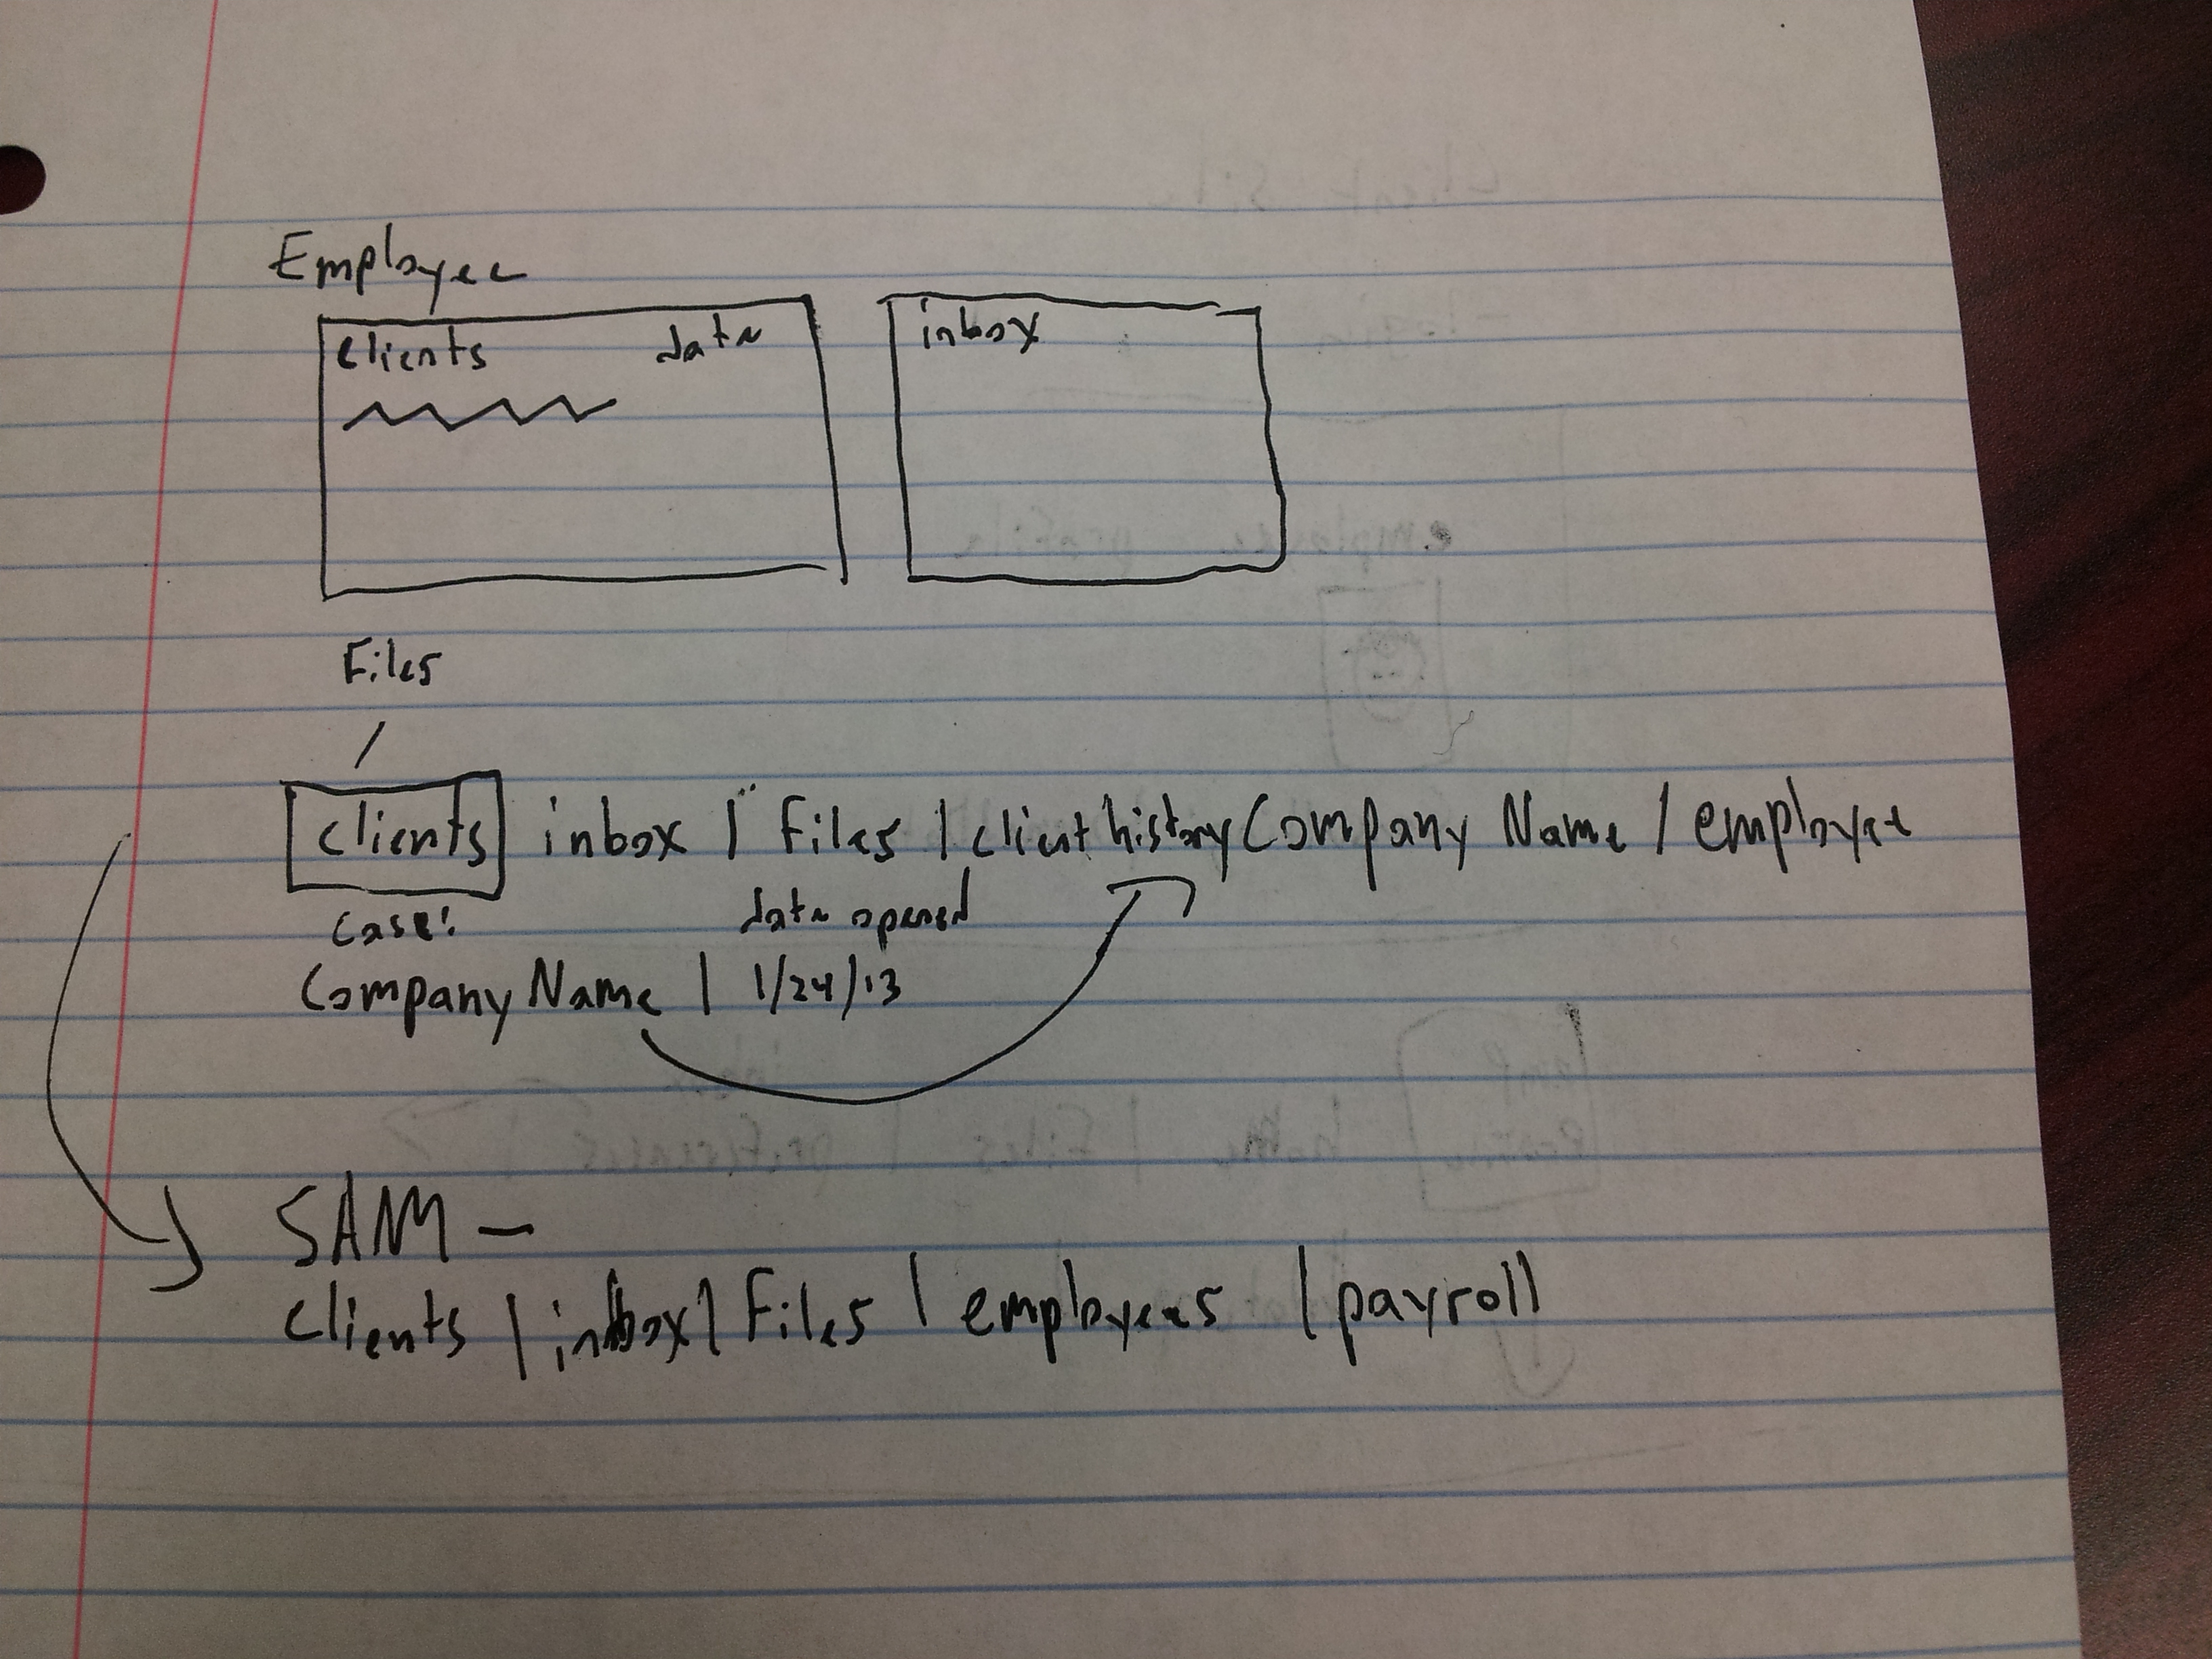 Employee
clients data
inbox
Files
/
clients inbox | Files | client history Company Name / employee
case: data opened
Company Name | 1/24/13
SAM -
clients | inbox | Files | employees | payroll